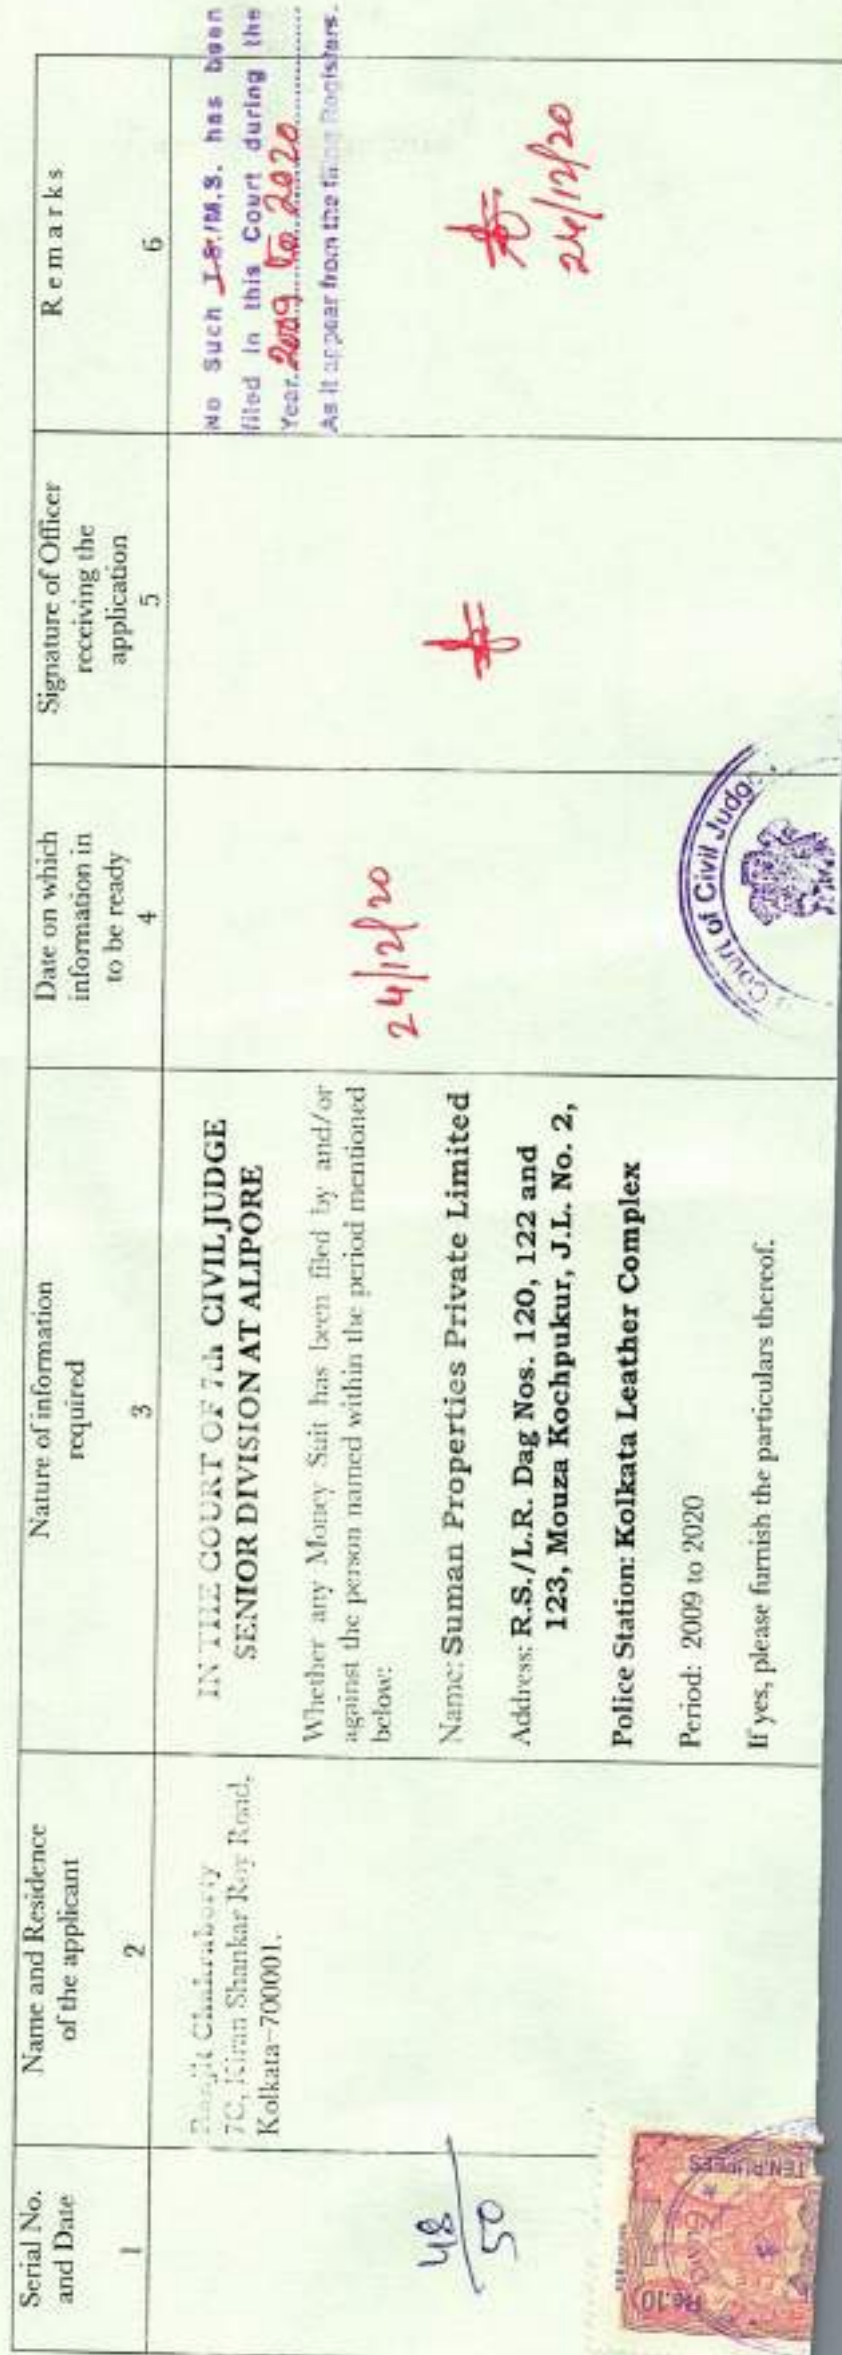 Serial No.
and Date
1
Name and Residence
of the applicant
2
Nature of information
required
3
Date on which
information in
to be ready
4
Signature of Officer
receiving the
application
5
Remarks
6
48
50
Chakraborty
7C, Kiran Shankar Roy Road,
Kolkata-700001.
IN THE COURT OF 7th CIVIL JUDGE
SENIOR DIVISION AT ALIPORE
Whether any Money Suit has been filed by and/or
against the person named within the period mentioned
below:
Name: Suman Properties Private Limited
Address: R.S./L.R. Dag Nos. 120, 122 and
123, Mouza Kochpukur, J.L. No. 2,
Police Station: Kolkata Leather Complex
Period: 2009 to 2020
If yes, please furnish the particulars thereof.
24/12/20
No Such T.S./M.S. has been
filed in this Court during the
Year. 2009 to 2020
As it appear from the filing Registers.
24/12/20
Court of Civil Judg
Re.10
TEN RUPEES